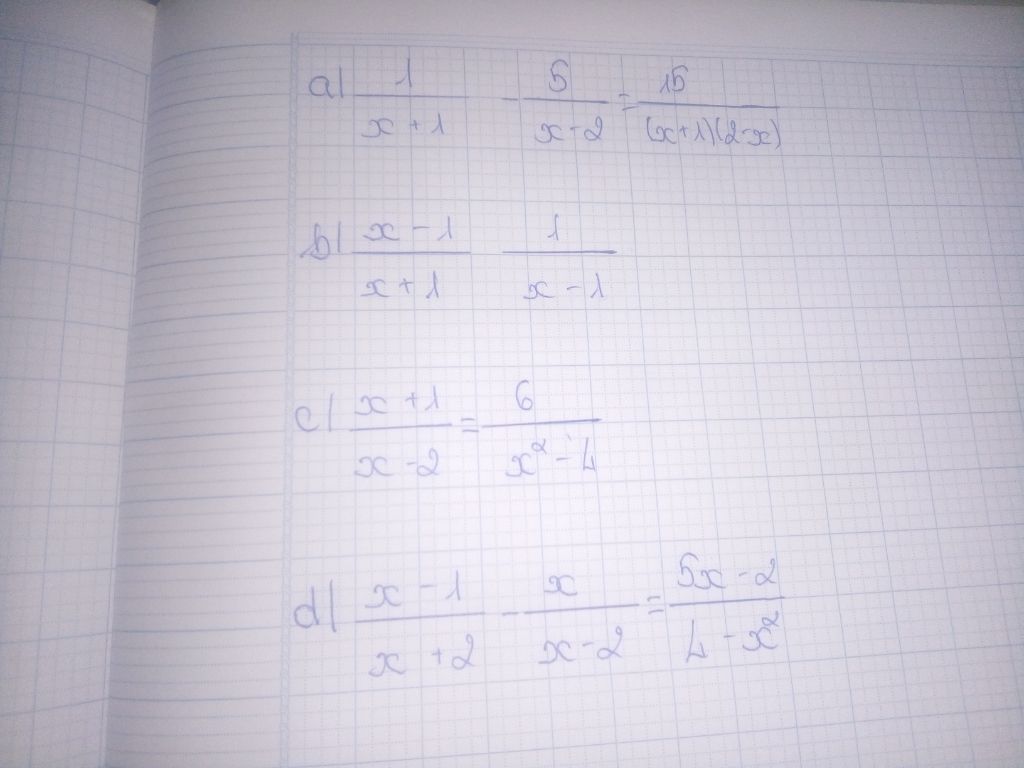 a) 1/(x+1) - 5/(x-2) = 15/((x+1)(2-x))
b) (x-1)/(x+1) 1/(x-1)
c) (x+1)/(x-2) = 6/(x²-4)
d) (x-1)/(x+2) - x/(x-2) = (5x-2)/(4-x²)